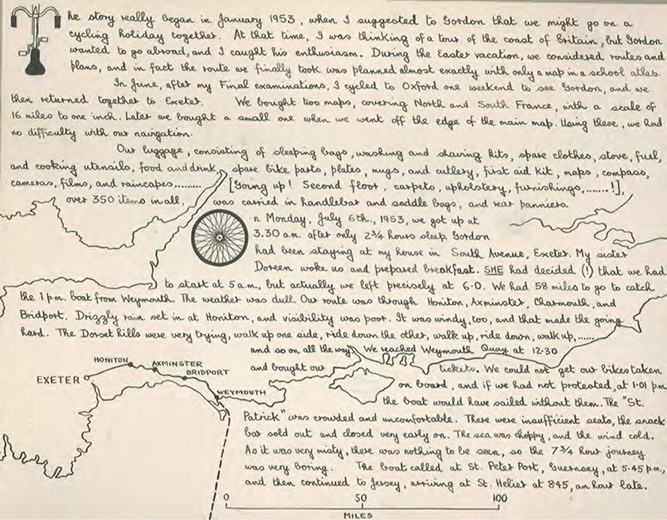 he story really began in January 1953, when I suggested to Gordon that we might go on a
cycling holiday together. At that time, I was thinking of a tour of the coast of Britain, but Gordon
wanted to go abroad, and I caught his enthusiasm. During the Easter vacation, we considered routes and
plans, and in fact the route we finally took was planned almost exactly with only a map in a school atlas.
In June, after my Final examinations, I cycled to Oxford one weekend to see Gordon, and we
then returned together to Exeter. We bought two maps, covering North and South France, with a scale of
16 miles to one inch. Later we bought a small one when we went off the edge of the main map. Using these, we had
no difficulty with our navigation.
Our luggage, consisting of sleeping bags, washing and shaving kits, spare clothes, stove, fuel,
and cooking utensils, food and drink, spare bike parts, plates, mugs, and cutlery, first aid kit, maps, compass,
cameras, films, and raincapes......... [Going up! Second floor, carpets, upholstery, furnishings,......!],
over 350 items in all, was carried in handlebar and saddle bags, and rear panniers.
n Monday, July 6th., 1953, we got up at
3.30 a.m. after only 2¾ hours sleep. Gordon
had been staying at my house in South Avenue, Exeter. My sister
Doreen woke us and prepared breakfast. SHE had decided (!) that we had
to start at 5 a.m., but actually we left precisely at 6.0. We had 58 miles to go to catch
the 1 p.m. boat from Weymouth. The weather was dull. Our route was through Honiton, Axminster, Charmouth, and
Bridport. Drizzly rain set in at Honiton, and visibility was poor. It was windy, too, and that made the going
hard. The Dorset hills were very trying, walk up one side, ride down the other, walk up, ride down, walk up,......
and so on all the way. We reached Weymouth Quay at 12.30
and bought our tickets. We could not get our bikes taken
on board, and if we had not protested, at 1.01 pm
the boat would have sailed without them. The "St.
Patrick" was crowded and uncomfortable. There were insufficient seats, the snack
bar sold out and closed very early on. The sea was choppy, and the wind cold.
As it was very misty, there was nothing to be seen, so the 7¾ hour journey
was very boring. The boat called at St. Peter Port, Guernsey, at 5.45 p.m.,
and then continued to Jersey, arriving at St. Helier at 8.45, an hour late.
EXETER
HONITON
AXMINSTER
BRIDPORT
WEYMOUTH
0 50 100
MILES